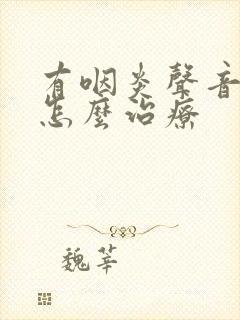 有咽炎聲音
怎麼治療
魏莘